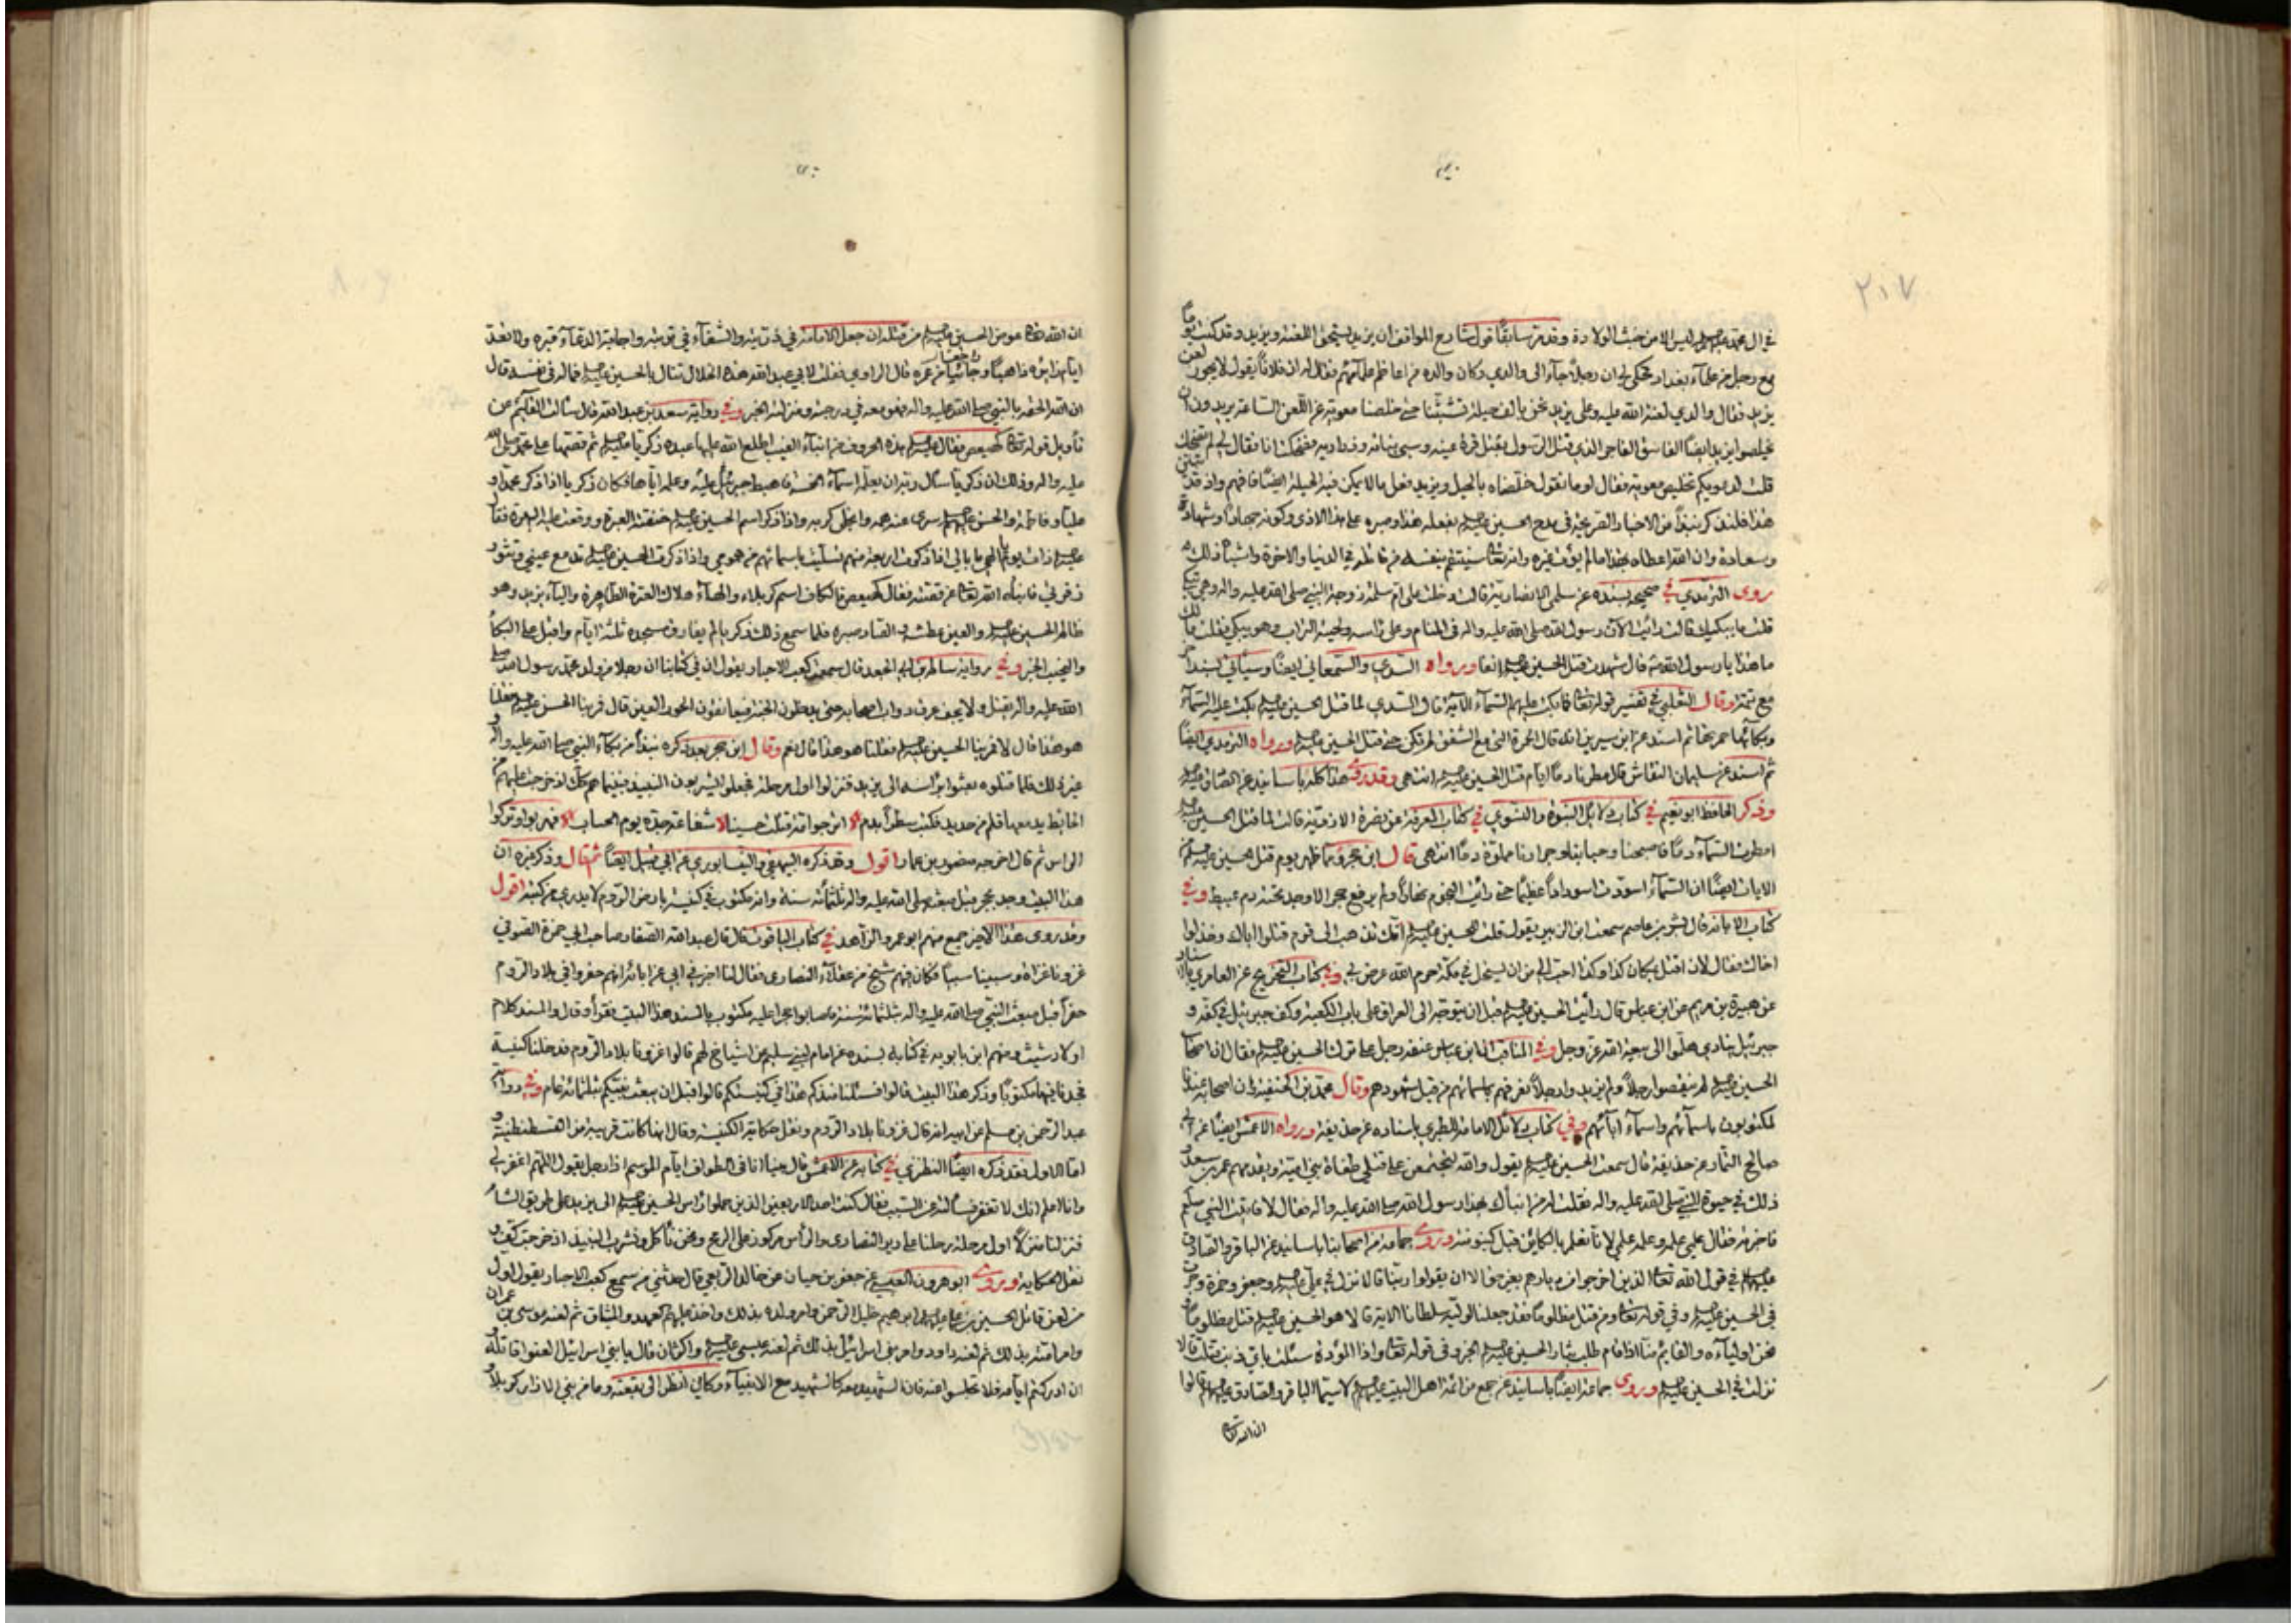 ٢٠٧
في ال محمد عليهم السلام ليس الا من خبث الولادة وقد مر سابقًا قول شارح المواقف ان يزيد يستحق اللعنة ويزيد وقد كنت يومًا
مع رجل من علماء بغداد فحكى لي ان رجلًا جاء الى والدي وكان والده من اعاظم علمائهم فقال له ان فلانًا يقول لا يجوز لعن
يزيد فقال والدي لعنة الله عليه وعلى يزيد نحن بالف حيلة تشبثنا حتى خلصنا معوية عن اللعن الساعة يريدون ان
يخلصوا يزيد ايضًا الفاسق الفاجر الذي قتل الرسول بقتل قرة عينه وسبي بناته وذراريه فضحكت انا فقال لي لم تضحك
قلت له يكم تخليص معوية فقال او ما نقول خلصناه بالحيل ويزيد فعل ما لا يمكن فيه الحيلة ايضًا فافهم واذ قد تبين
هذا فلنذكر نبذًا من الاخبار الصريحة في مدح الحسين عليه السلام بفعله هذا وصبره على هذا الاذى وكونه جهادًا وشهادة
وسعادة وان الله اعطاه بهذا ما لم يؤت غيره وانه تعالى سينتقم بنفسه من قاتله في الدنيا والاخرة واشباه ذلك
روى الترمذي في صحيحه بسنده عن سلمى الانصارية قالت دخلت على ام سلمة زوجة النبي صلى الله عليه واله وهي تبكي
قلت ما يبكيك قالت رأيت الآن رسول الله صلى الله عليه واله في المنام وعلى رأسه ولحيته التراب وهو يبكي فقلت مالك
ما هذا يا رسول الله قال شهدت قتل الحسين عليه السلام انفا ورواه السدي والسمعاني ايضًا وسيأتي بسند اخر
مع تتمة وقال الثعلبي في تفسير قوله تعالى فما بكت عليهم السماء الآية قال السدي لما قتل الحسين عليه السلام بكت عليه السماء
وبكائها حمرتها ثم اسند عن ابن سيرين انه قال الحمرة التي مع الشفق لم تكن حتى قتل الحسين عليه السلام ورواه الترمذي ايضًا
ثم اسند عن سليمان النقاش قال مطرنا دمًا ايام قتل الحسين عليه السلام انتهى وقد روي هذا كله باسانيد عن الصادق عليه السلام
وذكر الحافظ ابو نعيم في كتاب دلائل النبوة والنسوي في كتاب المعرفة عن نضرة الازدية قالت لما قتل الحسين عليه السلام
امطرت السماء دمًا فاصبحنا وحبابنا وجرارنا مملوة دمًا انتهى قال ابن حجر ومما ظهر يوم قتل الحسين عليه السلام من
الايات ايضًا ان السماء اسودت اسودادًا عظيمًا حتى رأيت النجوم نهارًا ولم يرفع حجر الا وجد تحته دم عبيط وفي
كتاب الابانة قال بشر بن عاصم سمعت ابن الزبير يقول قلت للحسين عليه السلام انك تذهب الى قوم قتلوا اباك وخذلوا
اخاك فقال لان اقتل بمكان كذا وكذا احب الي من ان يستحل في مكة حرم الله عرض لي وفي كتاب التخريج عن العامري باسناده
عن هبيرة بن مريم عن ابن عباس قال رأيت الحسين عليه السلام قبل ان يتوجه الى العراق على باب الكعبة وكف جبرئيل في كفه و
جبرئيل ينادي هلموا الى بيعة الله عز وجل وفي المناقب ان ابن عباس عنفه رجل على تركه الحسين عليه السلام فقال ان اصحاب
الحسين عليه السلام لم ينقصوا رجلًا ولم يزيدوا رجلًا نعرفهم باسمائهم من قبل شهودهم وقال محمد بن الحنفية ان اصحابه عندنا
لمكتوبون باسمائهم واسماء ابائهم وفي كتاب دلائل الامامة للطبري باسناده عن حذيفة ورواه الاعمش ايضًا عن ابي
صالح التمار عن حذيفة قال سمعت الحسين عليه السلام يقول والله ليجتمعن على قتلي طغاة بني امية ويقدمهم عمر بن سعد و
ذلك في حيوة النبي صلى الله عليه واله فقلت له من انبأك بهذا رسول الله صلى الله عليه واله فقال لا فاتيت النبي صلعم
فاخبرته فقال علمي علمه وعلمه علمي لانا نعلم بالكاين قبل كينونته وروى جماعة من اصحابنا باسانيد عن الباقر والصادق
عليهم السلام في قول الله تعالى الذين اخرجوا من ديارهم بغير حق الا ان يقولوا ربنا الله قالا نزل في علي عليه السلام وجعفر وحمزة وجرت
في الحسين عليه السلام وفي قوله تعالى ومن قتل مظلومًا فقد جعلنا لوليه سلطانا الاية قالا هو الحسين عليه السلام قتل مظلومًا و
نحن اولياءه والقايم منا اذا قام طلب بثار الحسين عليه السلام الخبر وفي قوله تعالى واذا الموؤدة سئلت باي ذنب قتلت قالا
نزلت في الحسين عليه السلام وروى جماعة ايضًا باسانيد عن جمع من ائمة اهل البيت عليهم السلام لا سيما الباقر والصادق عليهما السلام قالوا
ان الله تعالى
ان الله تعالى عوض الحسين عليه السلام من قتله ان جعل الامامة في ذريته والشفاء في تربته واجابة الدعاء عند قبره ولا تعد
ايام زائره ذاهبًا وجائيًا من عمره قال الراوي فقلت لابي عبد الله هذه الخلال تنال بالحسين عليه السلام فما له في نفسه قال
ان الله الحقه بالنبي صلى الله عليه واله فهو معه في درجته ومنزلته الخبر وفي رواية سعد بن عبد الله قال سألت القائم عن
تأويل قوله تعالى كهيعص فقال عليه السلام هذه الحروف من انباء الغيب اطلع الله عليها عبده زكريا عليه السلام ثم قصها على محمد صلى الله
عليه واله وذلك ان زكريا سأل ربه ان يعلمه اسماء الخمسة فاهبط جبرئيل عليه وعلمه اياها فكان زكريا اذا ذكر محمدًا و
عليًا وفاطمة والحسن عليهم السلام سرى عنه همه وانجلى كربه واذا ذكر اسم الحسين عليه السلام خنقته العبرة ووقعت عليه البهرة فقال
عليه السلام ذات يوم الهي ما بالي اذا ذكرت اربعة منهم تسليت باسمائهم من همومي واذا ذكرت الحسين عليه السلام تدمع عيني وتثور
زفرتي فانبأه الله تعالى عن قصته فقال كهيعص فالكاف اسم كربلاء والهاء هلاك العترة الطاهرة والياء يزيد وهو
ظالم الحسين عليه السلام والعين عطشه والصاد صبره فلما سمع ذلك زكريا لم يفارق مسجده ثلثة ايام واقبل على البكاء
والنحيب الخبر وفي رواية سالم بن ابي الجعد قال سمعت كعب الاحبار يقول ان في كتابنا ان رجلا من ولد محمد رسول الله صلى
الله عليه واله يقتل ولا يجف عرق دواب اصحابه حتى يدخلون الجنة فيعانقون الحور العين قال فمر بنا الحسن عليه السلام فقلنا
هو هذا قال لا فمر بنا الحسين عليه السلام فقلنا هو هذا قال نعم وقال ابن حجر بعد ذكره نبذًا من بكاء النبي صلى الله عليه واله و
غير ذلك فلما قتلوه بعثوا برأسه الى يزيد فنزلوا اول مرحلة فجعلوا يشربون النبيذ فبينما هم كذلك اذ خرجت عليهم من
الحائط يد معها قلم من حديد فكتب سطرًا بدم الا اترجو امة قتلت حسينا الا شفاعة جده يوم الحساب الا فهربوا وتركوا
الراس ثم قال اخرجه منصور بن عمار اقول وقد ذكره البيهقي والنيسابوري عن ابي قبيل ايضًا ثم قال وذكر غيره ان
هذا البيت وجد بحجر قبل مبعثه صلى الله عليه واله بثلثمائة سنة وانه مكتوب في كنيسة بارض الروم لا يدرى من كتبه اقول
وقد روى هذا الاخير جمع منهم ابو عمرو الزاهد في كتاب الياقوت قال قال عبد الله الصفار صاحب ابي حمزة الصوفي
غزونا غزاة وسبينا سبيًا فكان فيهم شيخ من عقلاء النصارى فقال لنا اخبرني ابي عن ابائه انهم حفروا في بلاد الروم
حفرًا قبل مبعث النبي صلى الله عليه واله بثلثمائة سنة فاصابوا حجرا عليه مكتوب بالمسند هذا البيت فقرأوه قال والمسند كلام
اولاد شيث ومنهم ابن بابويه في كتابه بسنده عن امام لبني سليم عن اشياخ لهم قالوا غزونا بلاد الروم فدخلنا كنيسة
فوجدنا فيها مكتوبًا وذكر هذا البيت قالوا فسئلنا منذ كم هذا في كنيستكم قالوا قبل ان يبعث نبيكم بثلثمائة عام وفي رواية
عبد الرحمن بن مسلم عن ابيه انه قال غزونا بلاد الروم ونقل حكاية الكنيسة وقال انها كانت قريبة من القسطنطنية و
اما الاول فقد ذكره ايضًا النطنزي في كتابه عن الاعمش قال بينا انا في الطواف ايام الموسم اذا رجل يقول اللهم اغفر لي
وانا اعلم انك لا تغفر فسألته عن السبب فقال كنت احد الاربعين الذين حملوا رأس الحسين عليه السلام الى يزيد على طريق الشام
فنزلنا منزلًا اول مرحلة رحلنا على دير النصارى والرأس مركوز على الرمح ونحن نأكل ونشرب النبيذ اذ خرجت كف و
نقل الحكاية وروى ابو هرون العبسي عن جعفر بن حيان عن خالد الربعي قال حدثني من سمع كعب الاحبار يقول اول
من لعن قاتل الحسين بن علي عليهما السلام ابراهيم خليل الرحمن وامر ولده بذلك واخذ عليهم العهد والميثاق ثم لعنه موسى بن عمران
وامر امته بذلك ثم لعنه داود وامر بني اسرائيل بذلك ثم لعنه عيسى عليه السلام واكثر ان قال يا بني اسرائيل العنوا قاتله و
ان ادركتم ايامه فلا تجلسوا عنه فان الشهيد معه كالشهيد مع الانبياء وكاني انظر الى بقعته وما من نبي الا زار كربلاء